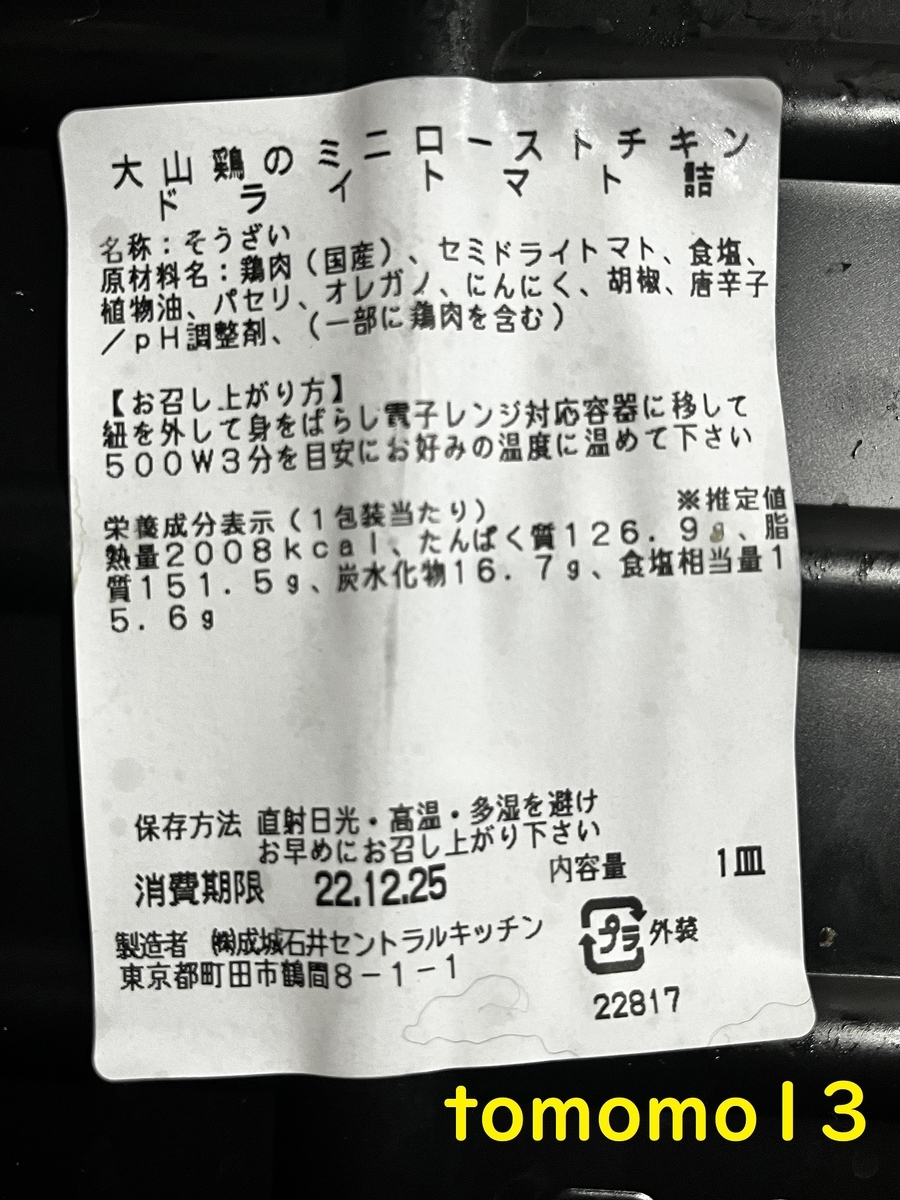 大山鶏のミニローストチキン
ドライトマト詰
名称：そうざい
原材料名：鶏肉（国産）、セミドライトマト、食塩、
植物油、パセリ、オレガノ、にんにく、胡椒、唐辛子
／ｐＨ調整剤、（一部に鶏肉を含む）
【お召し上がり方】
紐を外して身をばらし電子レンジ対応容器に移して
５００Ｗ３分を目安にお好みの温度に温めて下さい
※推定値
栄養成分表示（１包装当たり）
熱量２００８ｋｃａｌ、たんぱく質１２６．９ｇ、脂
質１５１．５ｇ、炭水化物１６．７ｇ、食塩相当量１
５．６ｇ
保存方法 直射日光・高温・多湿を避け
お早めにお召し上がり下さい
内容量 1皿
消費期限 22.12.25
製造者 ㈱成城石井セントラルキッチン
東京都町田市鶴間８－１－１
プラ 外装
22817
tomomo13